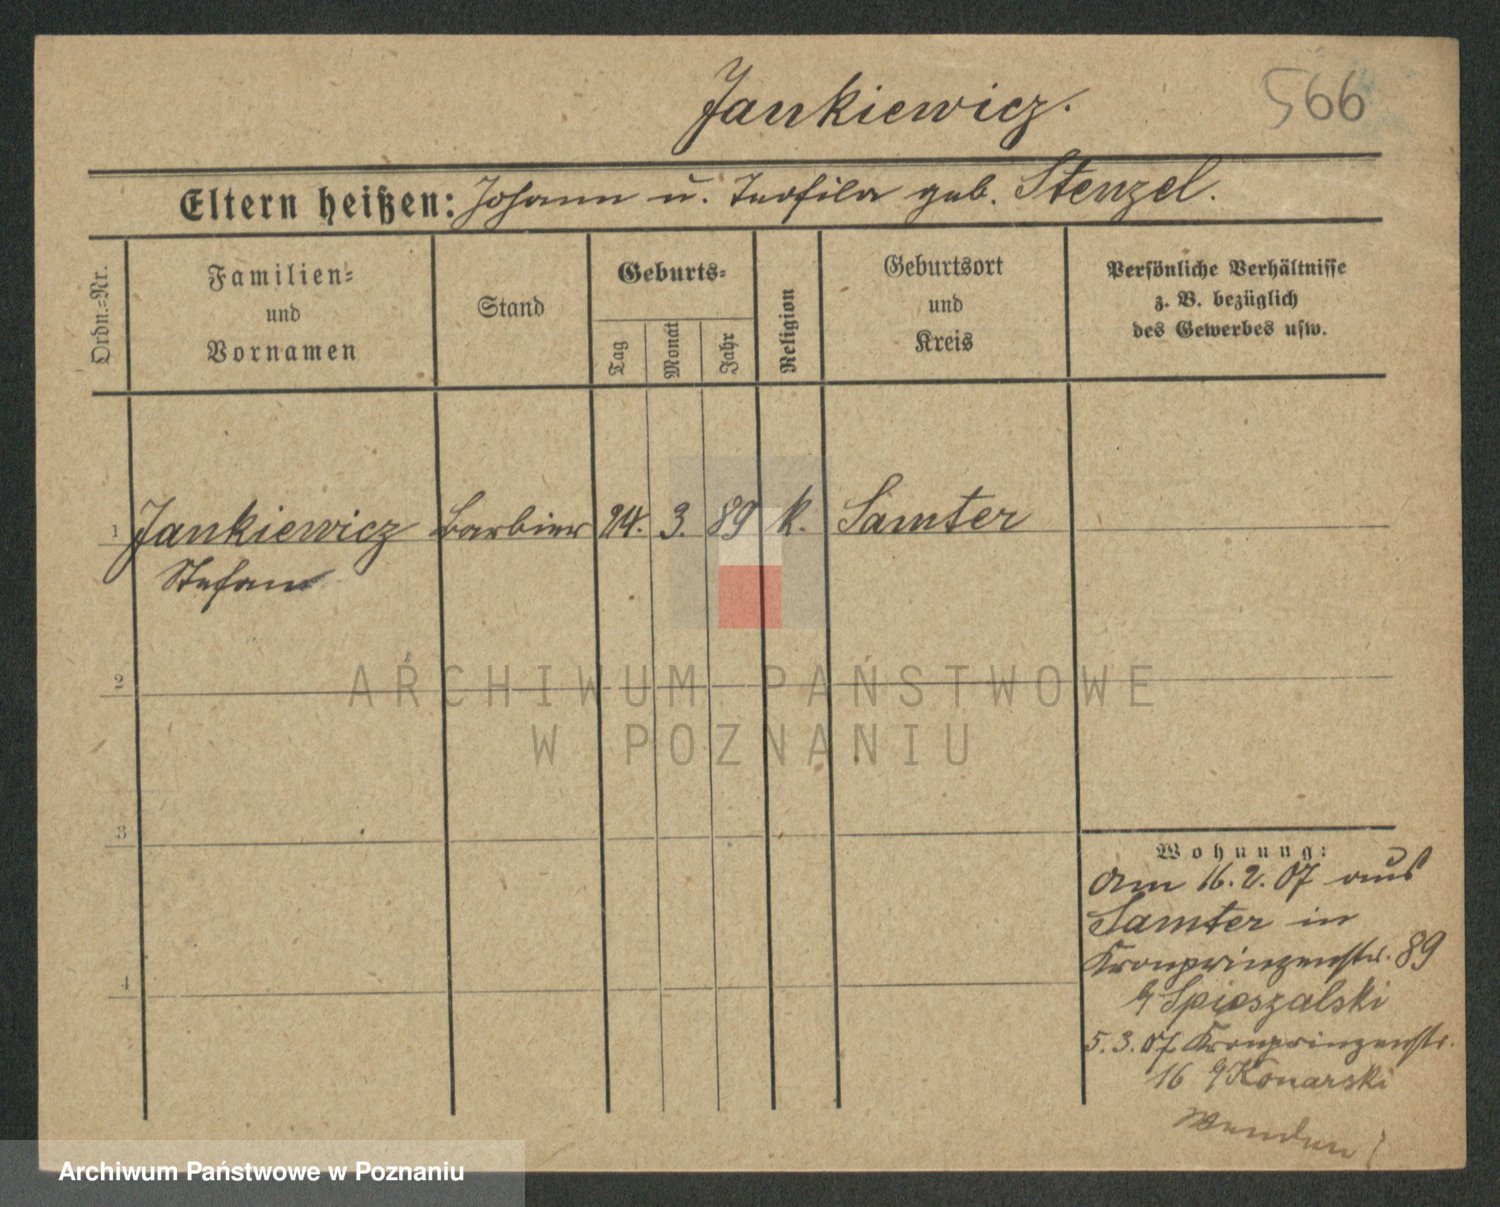 Jankiewicz.
566
Eltern heißen: Johann u. Teofila geb. Stenzel.
Ordn.=Nr.
Familien=
und
Vornamen
Stand
Geburts=
Tag
Monat
Jahr
Religion
Geburtsort
und
Kreis
Persönliche Verhältnisse
z. B. bezüglich
des Gewerbes usw.
1 Jankiewicz Barbier 24. 3. 89 k. Samter
Stefan
2
ARCHIWUM PAŃSTWOWE
W POZNANIU
3
Wohnung:
am 16.2.07 aus
Samter in
Kronprinzenstr. 89
b/ Spieszalski
4
5.3.07 Kronprinzenstr.
16 b/ Konarski
Wenden!
Archiwum Państwowe w Poznaniu